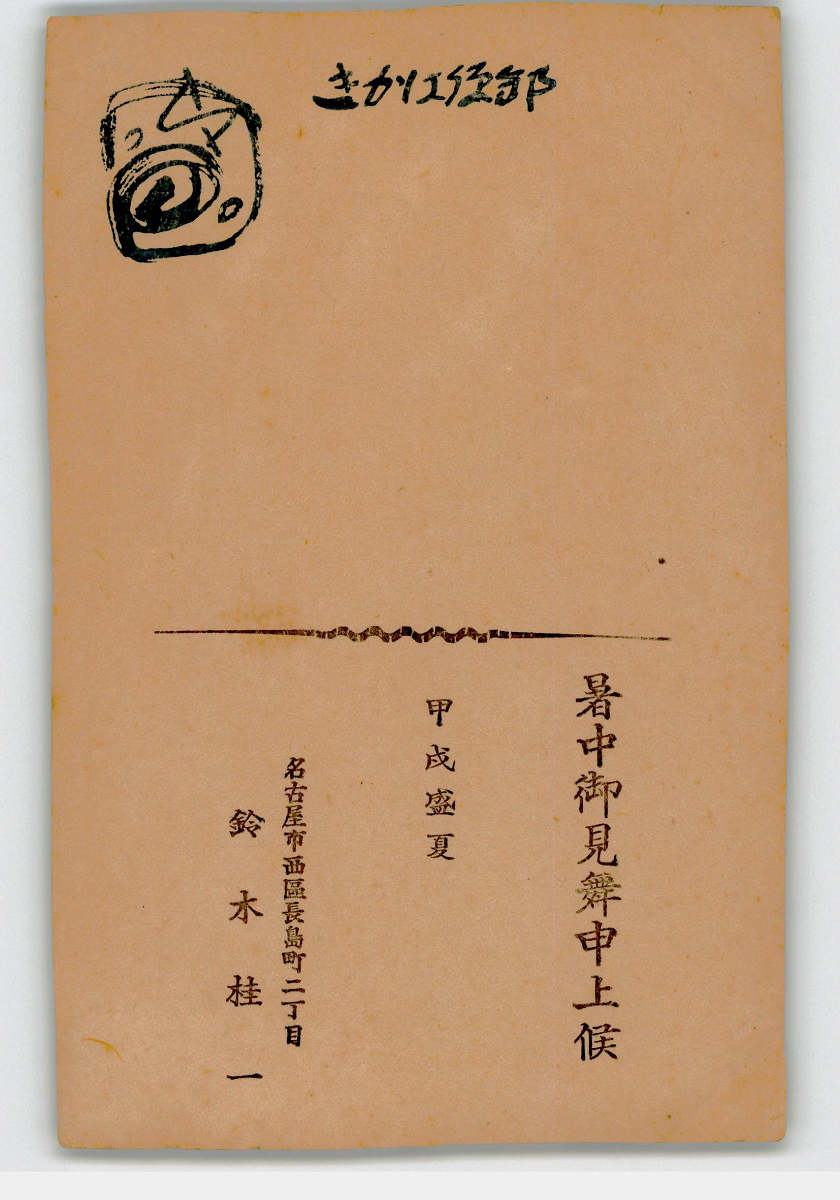 暑中御見舞申上候
甲戌盛夏
名古屋市西區長島町二丁目
鈴木桂一